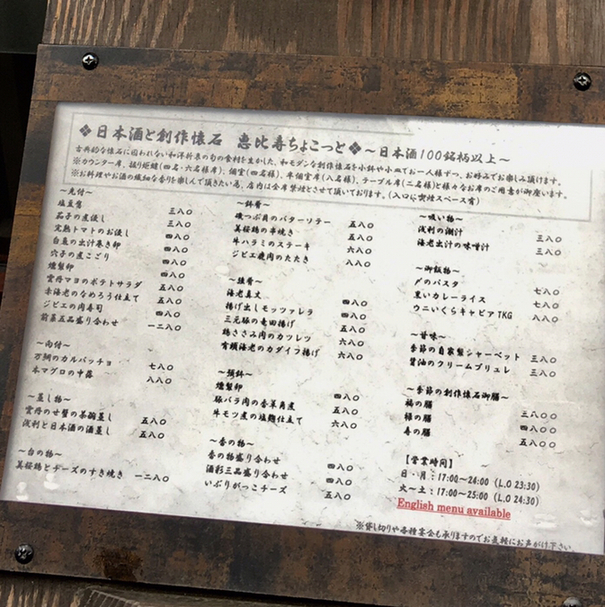 ❖日本酒と創作懐石 恵比寿ちょこっと❖〜日本酒100銘柄以上〜
古典的な懐石に囚われない和洋折衷の旬の食材を生かした、和モダンな創作懐石を小鉢や小皿でお一人様ずつ、お好みでお楽しみ頂けます。
※カウンター席、掘り炬燵(四名・六名様席)、個室(四名様)、半個室席(八名様)、テーブル席(二名様)と様々なお席のご用意が御座います。
※お料理やお酒の繊細な香りを楽しんで頂きたい為、店内は全席禁煙とさせて頂いております。(入口に喫煙スペース有)
〜先付〜
塩豆富 三八〇
茄子の煮浸し 三八〇
完熟トマトのお浸し 四八〇
白魚の出汁巻き卵 四八〇
穴子の煮こごり 四八〇
燻製卵 四八〇
雲丹マヨのポテトサラダ 五八〇
赤海老のなめろう仕立て 五八〇
ジビエの肉寿司 四八〇
前菜五品盛り合わせ 一二八〇
〜向付〜
万鯛のカルパッチョ 七八〇
本マグロの中落 八八〇
〜蒸し物〜
雲丹のせ蟹の茶碗蒸し 五八〇
浅利と日本酒の酒蒸し 五八〇
〜台の物〜
美桜鶏とチーズのすき焼き 一二八〇
〜鉢肴〜
磯つぶ貝のバターソテー 五八〇
美桜鶏の串焼き 五八〇
牛ハラミのステーキ 六八〇
ジビエ鹿肉のたたき 八八〇
〜強肴〜
海老真丈 四八〇
揚げ出しモッツァレラ 四八〇
三元豚の竜田揚げ 五八〇
鶏ささみ肉のカツレツ 六八〇
有頭海老のカダイフ揚げ 六八〇
燻製卵 四八〇
豚バラ肉の香草角煮 五八〇
牛モツ煮の塩麹仕立て 六八〇
〜香の物〜
香の物盛り合わせ 四八〇
酒彩三品盛り合わせ 四八〇
いぶりがっこチーズ 五八〇
〜吸い物〜
浅利の潮汁 三八〇
海老出汁の味噌汁 三八〇
〜御飯物〜
〆のパスタ 七八〇
黒いカレーライス 七八〇
ウニいくらキャビアTKG 八八〇
〜甘味〜
季節の自家製シャーベット 三八〇
醤油のクリームブリュレ 三八〇
〜季節の創作懐石御膳〜
福の膳 三八〇〇
禄の膳 四八〇〇
寿の膳 五八〇〇
【営業時間】
日・月：17:00〜24:00 (L.O 23:30)
火〜土：17:00〜25:00 (L.O 24:30)
English menu available
※貸し切りや各種宴会も承りますのでお気軽にお声がけ下さい。